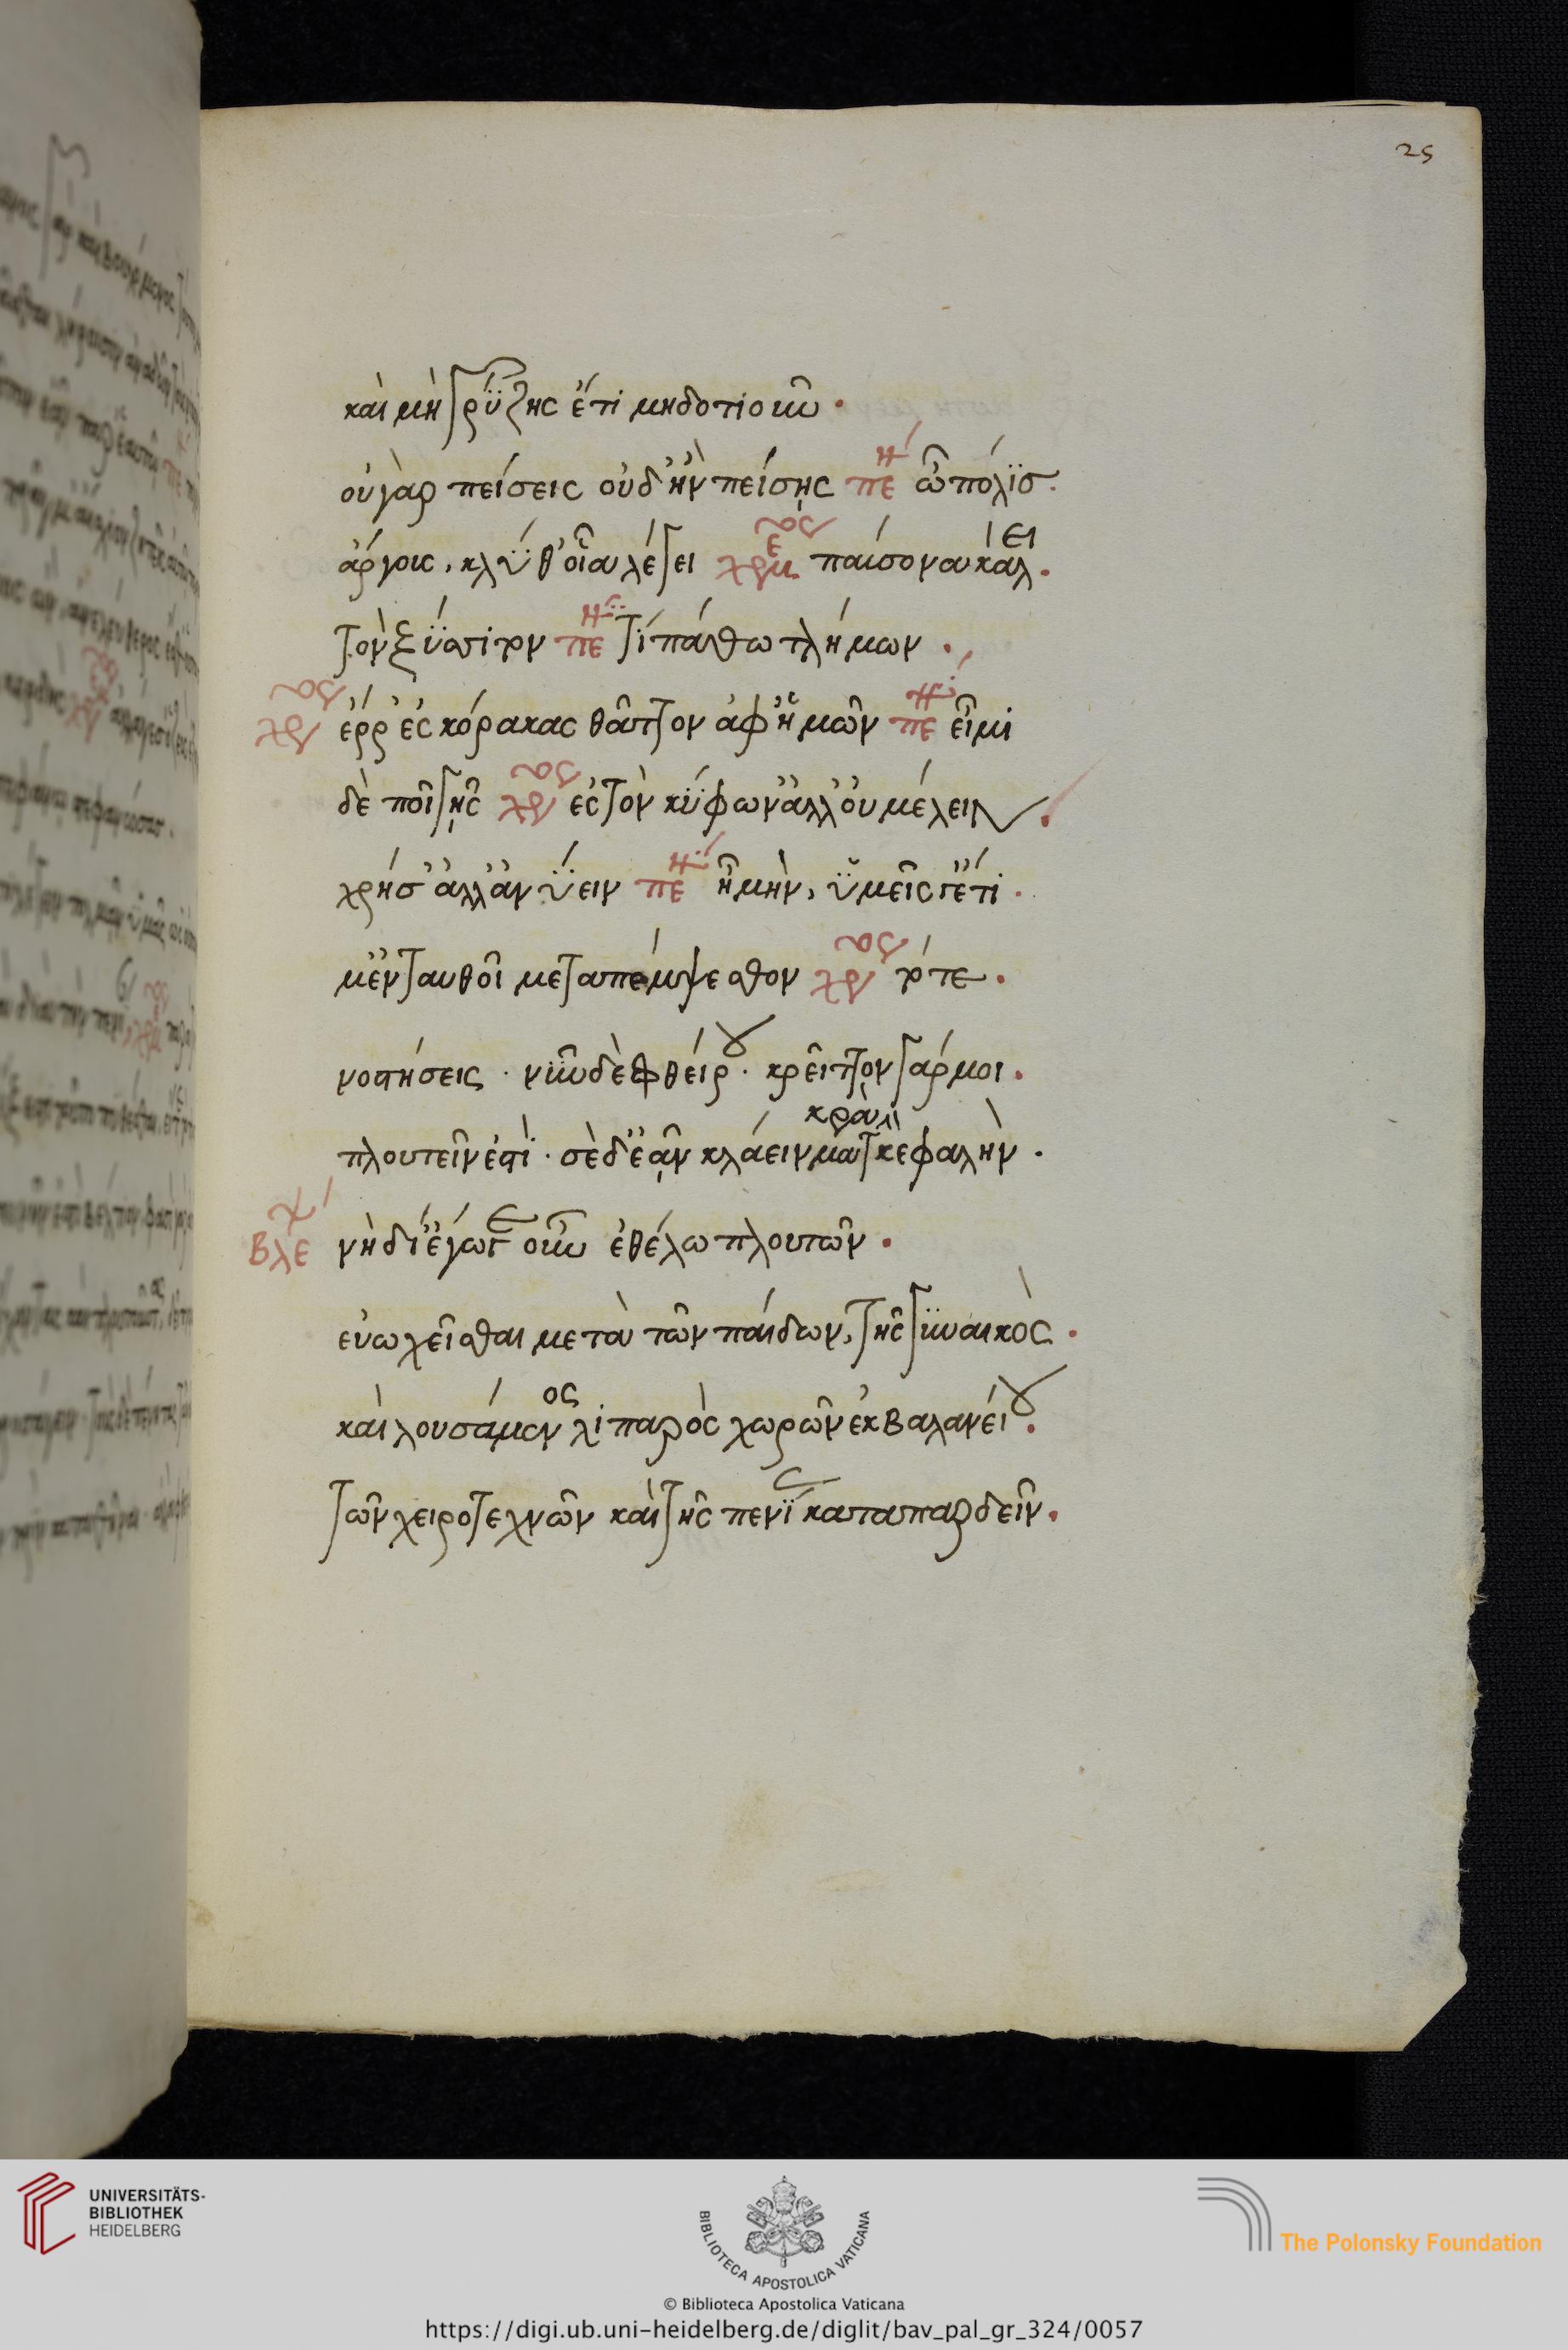 25
καὶ μὴ γρύζῃς ἔτι μηδοτιοῦν.
οὐ γὰρ πείσεις οὐδ' ἢν πείσῃς πε ὦ πόλισ
ἄργους, κλύεθ' οἷα λέγει χρεμ παύσωνα κάλει.
τὸν ξύσσιτον πε τί πάθω τλήμων.
χρ ἔρρ' ἐς κόρακας θᾶττον ἀφ' ἡμῶν πε εἶμι
δὲ ποῖ γῆς χρ ἐς τὸν κύφων' ἀλλ' οὐ μέλλειν
χρῆσ' ἀλλ' ἀνύειν πε ἦ μὴν, ὑμεῖς γ' ἔτι.
μ' ἐνταυθοῖ μεταπέμψεσθον χρ τότε.
νοστήσεις. νῦν δὲ φθείρου. κρεῖττον γάρ μοι.
πλουτεῖν ἐστὶ. σὲ δ' ἐᾶν κλάειν μακρὰ τ κεφαλὴν.
βλε νὴ δί' ἔγωγε οὖν ἐθέλω πλουτῶν.
εὐωχεῖσθαι μετὰ τῶν παίδων, τῆς γυναικὸς.
καὶ λουσάμενος λιπαρὸς χωρῶν ἐκ βαλανείου.
τῶν χειροτεχνῶν καὶ τῆς πενίας καταπαρδεῖν.
UNIVERSITÄTS-
BIBLIOTHEK
HEIDELBERG
BIBLIOTECA APOSTOLICA VATICANA
The Polonsky Foundation
© Biblioteca Apostolica Vaticana
https://digi.ub.uni-heidelberg.de/diglit/bav_pal_gr_324/0057